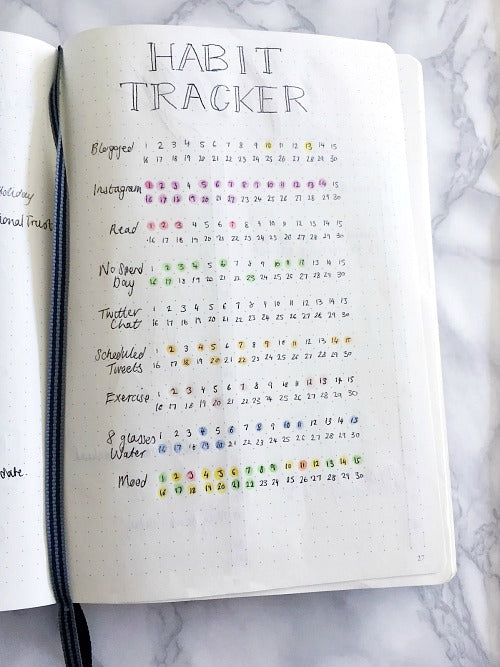 HABIT
TRACKER
Holiday
ional Trust
Blogged 1 2 3 4 5 6 7 8 9 10 11 12 13 14 15
16 17 18 19 20 21 22 23 24 25 26 27 28 29 30
Instagram 1 2 3 4 5 6 7 8 9 10 11 12 13 14 15
16 17 18 19 20 21 22 23 24 25 26 27 28 29 30
Read 1 2 3 4 5 6 7 8 9 10 11 12 13 14 15
16 17 18 19 20 21 22 23 24 25 26 27 28 29 30
No Spend 1 2 3 4 5 6 7 8 9 10 11 12 13 14 15
Day 16 17 18 19 20 21 22 23 24 25 26 27 28 29 30
Twitter 1 2 3 4 5 6 7 8 9 10 11 12 13 14 15
Chat 16 17 18 19 20 21 22 23 24 25 26 27 28 29 30
Scheduled 1 2 3 4 5 6 7 8 9 10 11 12 13 14 15
Tweets 16 17 18 19 20 21 22 23 24 25 26 27 28 29 30
Exercise 1 2 3 4 5 6 7 8 9 10 11 12 13 14 15
16 17 18 19 20 21 22 23 24 25 26 27 28 29 30
8 glasses 1 2 3 4 5 6 7 8 9 10 11 12 13 14 15
Water 16 17 18 19 20 21 22 23 24 25 26 27 28 29 30
Mood 1 2 3 4 5 6 7 8 9 10 11 12 13 14 15
16 17 18 19 20 21 22 23 24 25 26 27 28 29 30
27